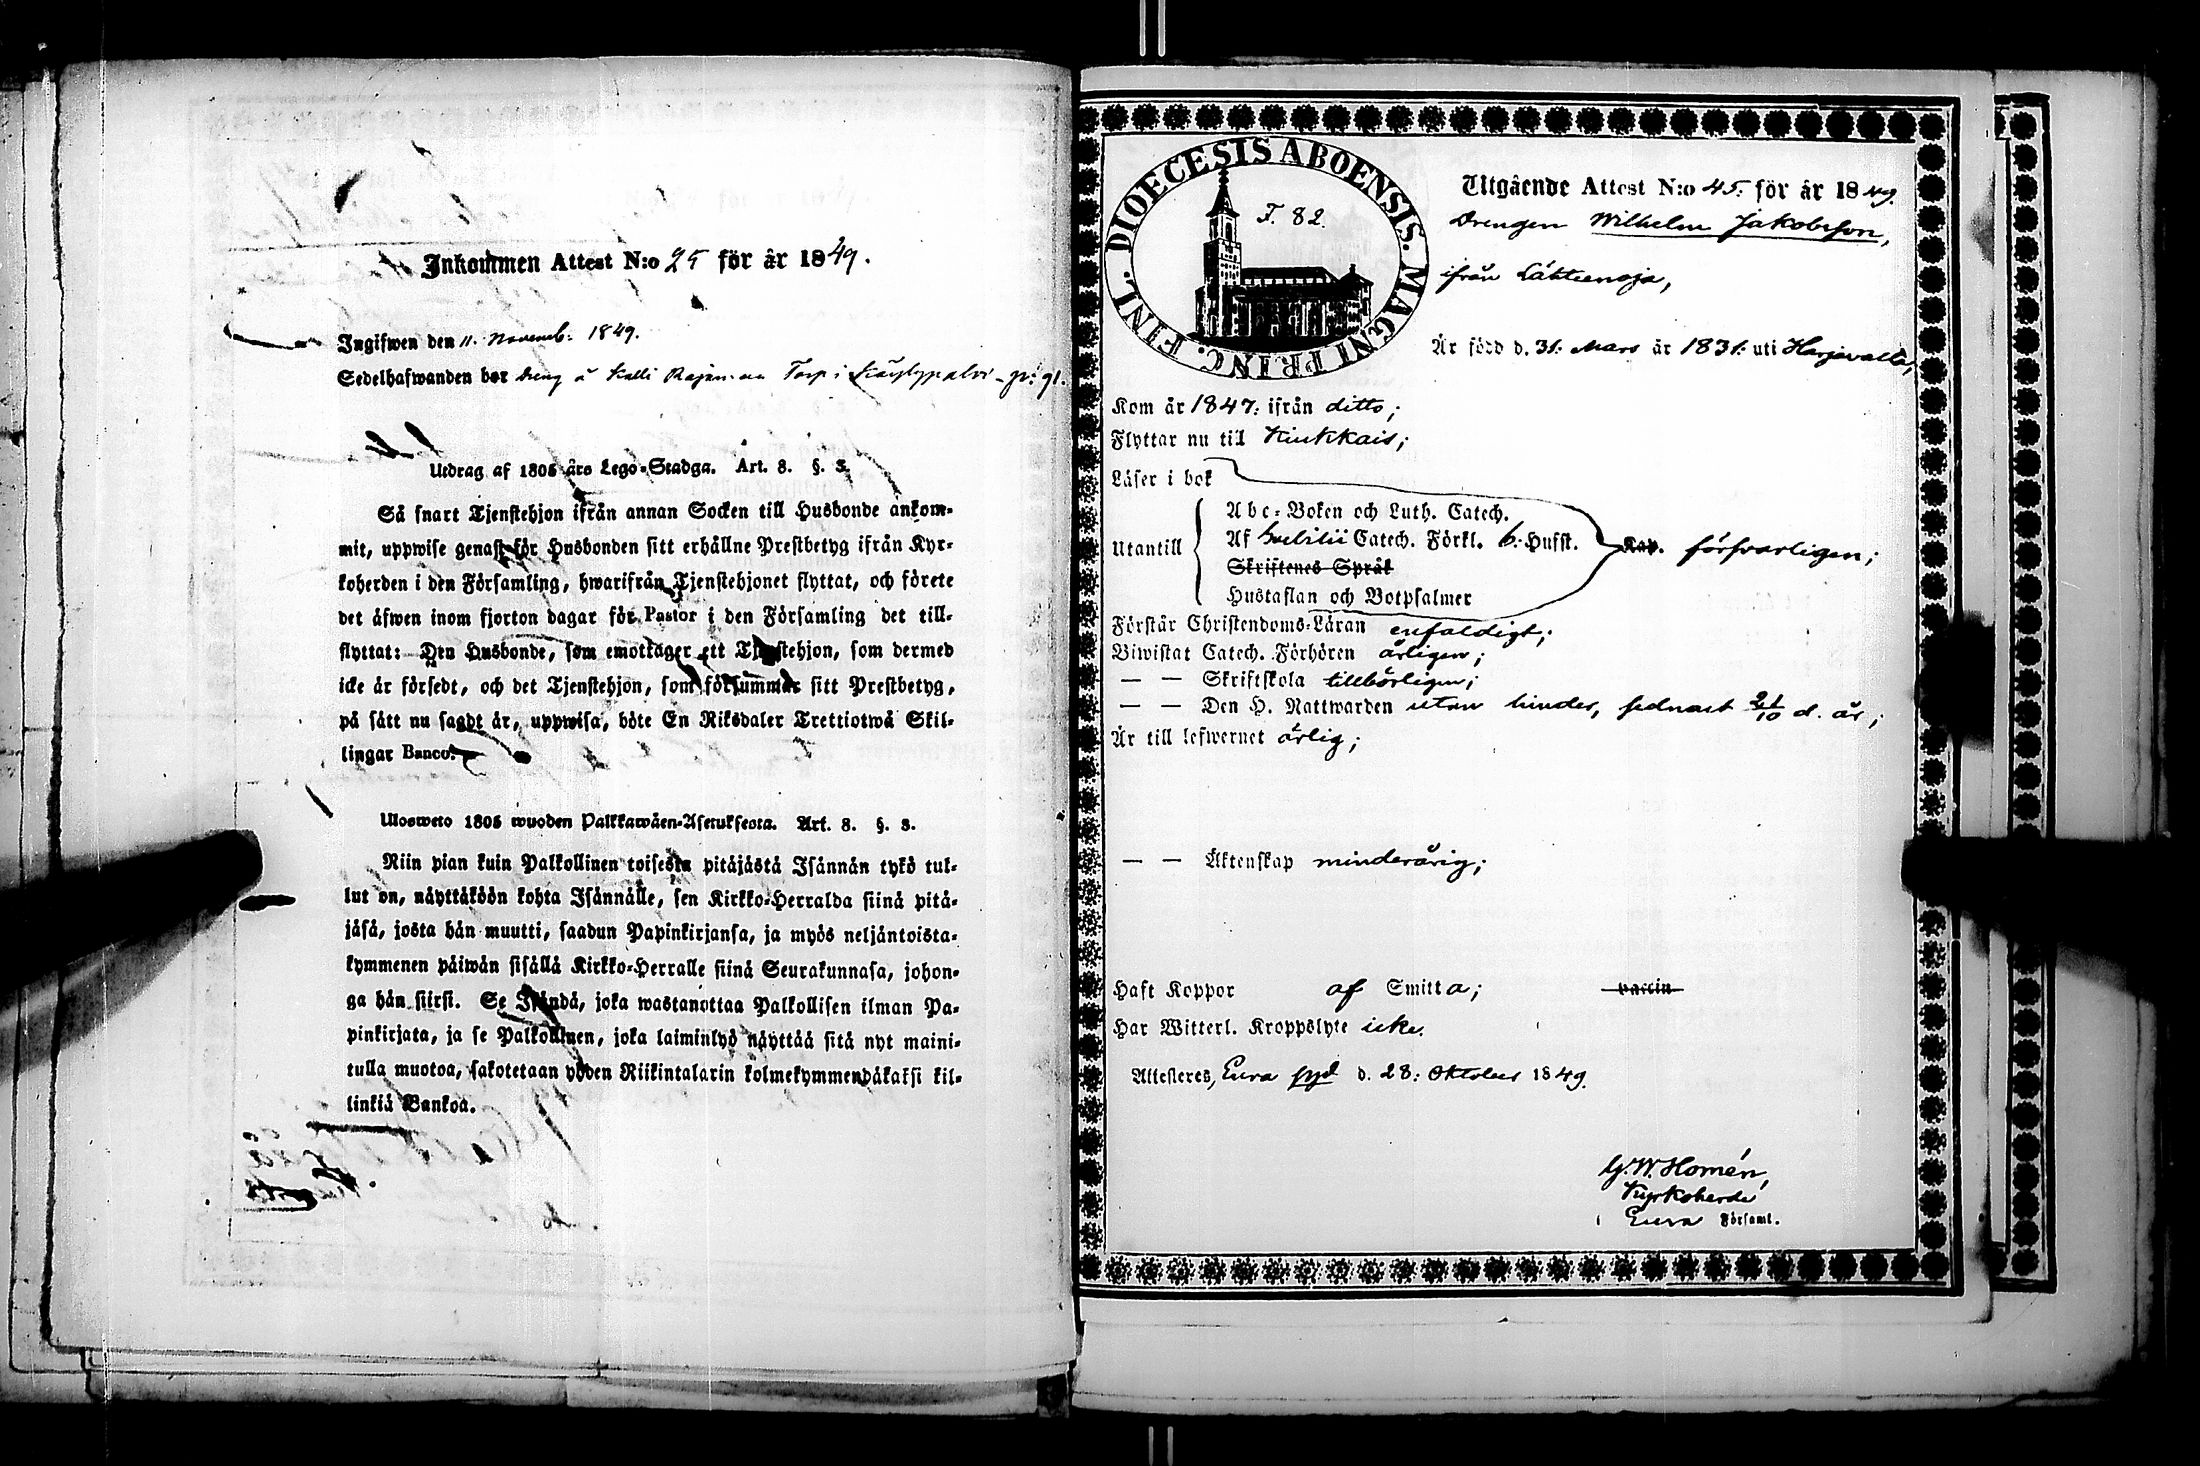 Inkommen Attest N:o 25 för år 1849.
Ingifwen den 11. Novemb: 1849.
Sedelhafwanden bor dräng å Kalli Torp i
Utdrag af 1805 års Lego-Stadga. Art. 8. §. 3.
Så snart Tjenstehjon ifrån annan Socken till Husbonde ankom-
mit, uppwise genast för Husbonden sitt erhållne Prestbetyg ifrån Kyr-
koherden i den Församling, hwarifrån Tjenstehjonet flyttat, och förete
det äfwen inom fjorton dagar för Pastor i den Församling det till-
flyttat: Den Husbonde, som emottager ett Tjenstehjon, som dermed
icke är försedt, och det Tjenstehjon, som försummar sitt Prestbetyg,
på sätt nu sagdt är, uppwisa, böte En Riksdaler Trettiotwå Skil-
lingar Banco.
Ulosweto 1805 wuoden Palkkawäen-Asetuksesta. Art. 8. §. 3.
Niin pian kuin Palkollinen toisesta pitäjästä Isännän tykö tul-
lut on, näyttäköön kohta Isännälle, sen Kirkko-Herralda siinä pitä-
jäsä, josta hän muutti, saadun Papinkirjansa, ja myös neljäntoista-
kymmenen päiwän sisällä Kirkko-Herralle siinä Seurakunnasa, johon-
ga hän siirsi. Se Isändä, joka wastanottaa Palkollisen ilman Pa-
pinkirjata, ja se Palkollinen, joka laiminlyö näyttää sitä nyt maini-
tulla muotoa, sakotetaan yhden Riikintalarin kolmekymmendäkaksi kil-
linkiä Bankoa.
DIOECESIS ABOENSIS. MAGNI PRINC. FINL.
F. 82.
Utgående Attest N:o 45. för år 1849.
Drengen Wilhelm Jakobsson,
ifrån Lähteenoja,
Är född d. 31. Mars år 1831. uti Harjavalta,
Kom år 1847: ifrån ditto;
Flyttar nu till Kiukkais;
Läser i bok
Utantill
Abc-Boken och Luth. Catech.
Af Svebilii Catech. Förkl. b: Husst. Kap. försvarligen;
Skriftenes Språk
Hustaflan och Botpsalmer
Förstår Christendoms-Läran enfaldigt;
Biwistat Catech. Förhören årligen;
— — Skriftskola tillbörligen;
— — Den H. Nattwarden utan hinder, sednast 21/10 d. år;
Är till lefwernet ärlig;
— — Äktenskap minderårig;
Haft Koppor af Smitta; vaccin
Har Witterl. Kroppslyte icke.
Attesteres, Eura d. 28: Oktober 1849.
G.W. Homén,
Kyrkoherde
i Eura Församl.